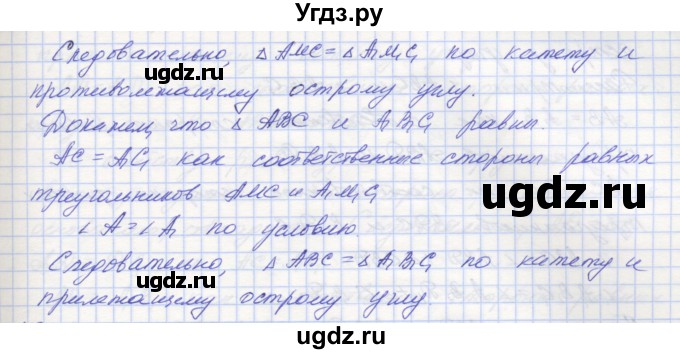 Угдз.ру
Следовательно, △ AMC = △ A₁M₁C₁ по катету и
противолежащему острому углу.
Докажем, что △ ABC и A₁B₁C₁ равны.
AC = A₁C₁ как соответственные стороны равных
треугольников AMC и A₁M₁C₁
∠ A = ∠ A₁ по условию.
Следовательно, △ ABC = △ A₁B₁C₁ по катету и
прилежащему острому углу.
ugdz.ru
ugdz.ru
ugdz.ru
ugdz.ru
ugdz.ru
ugdz.ru
ugdz.ru